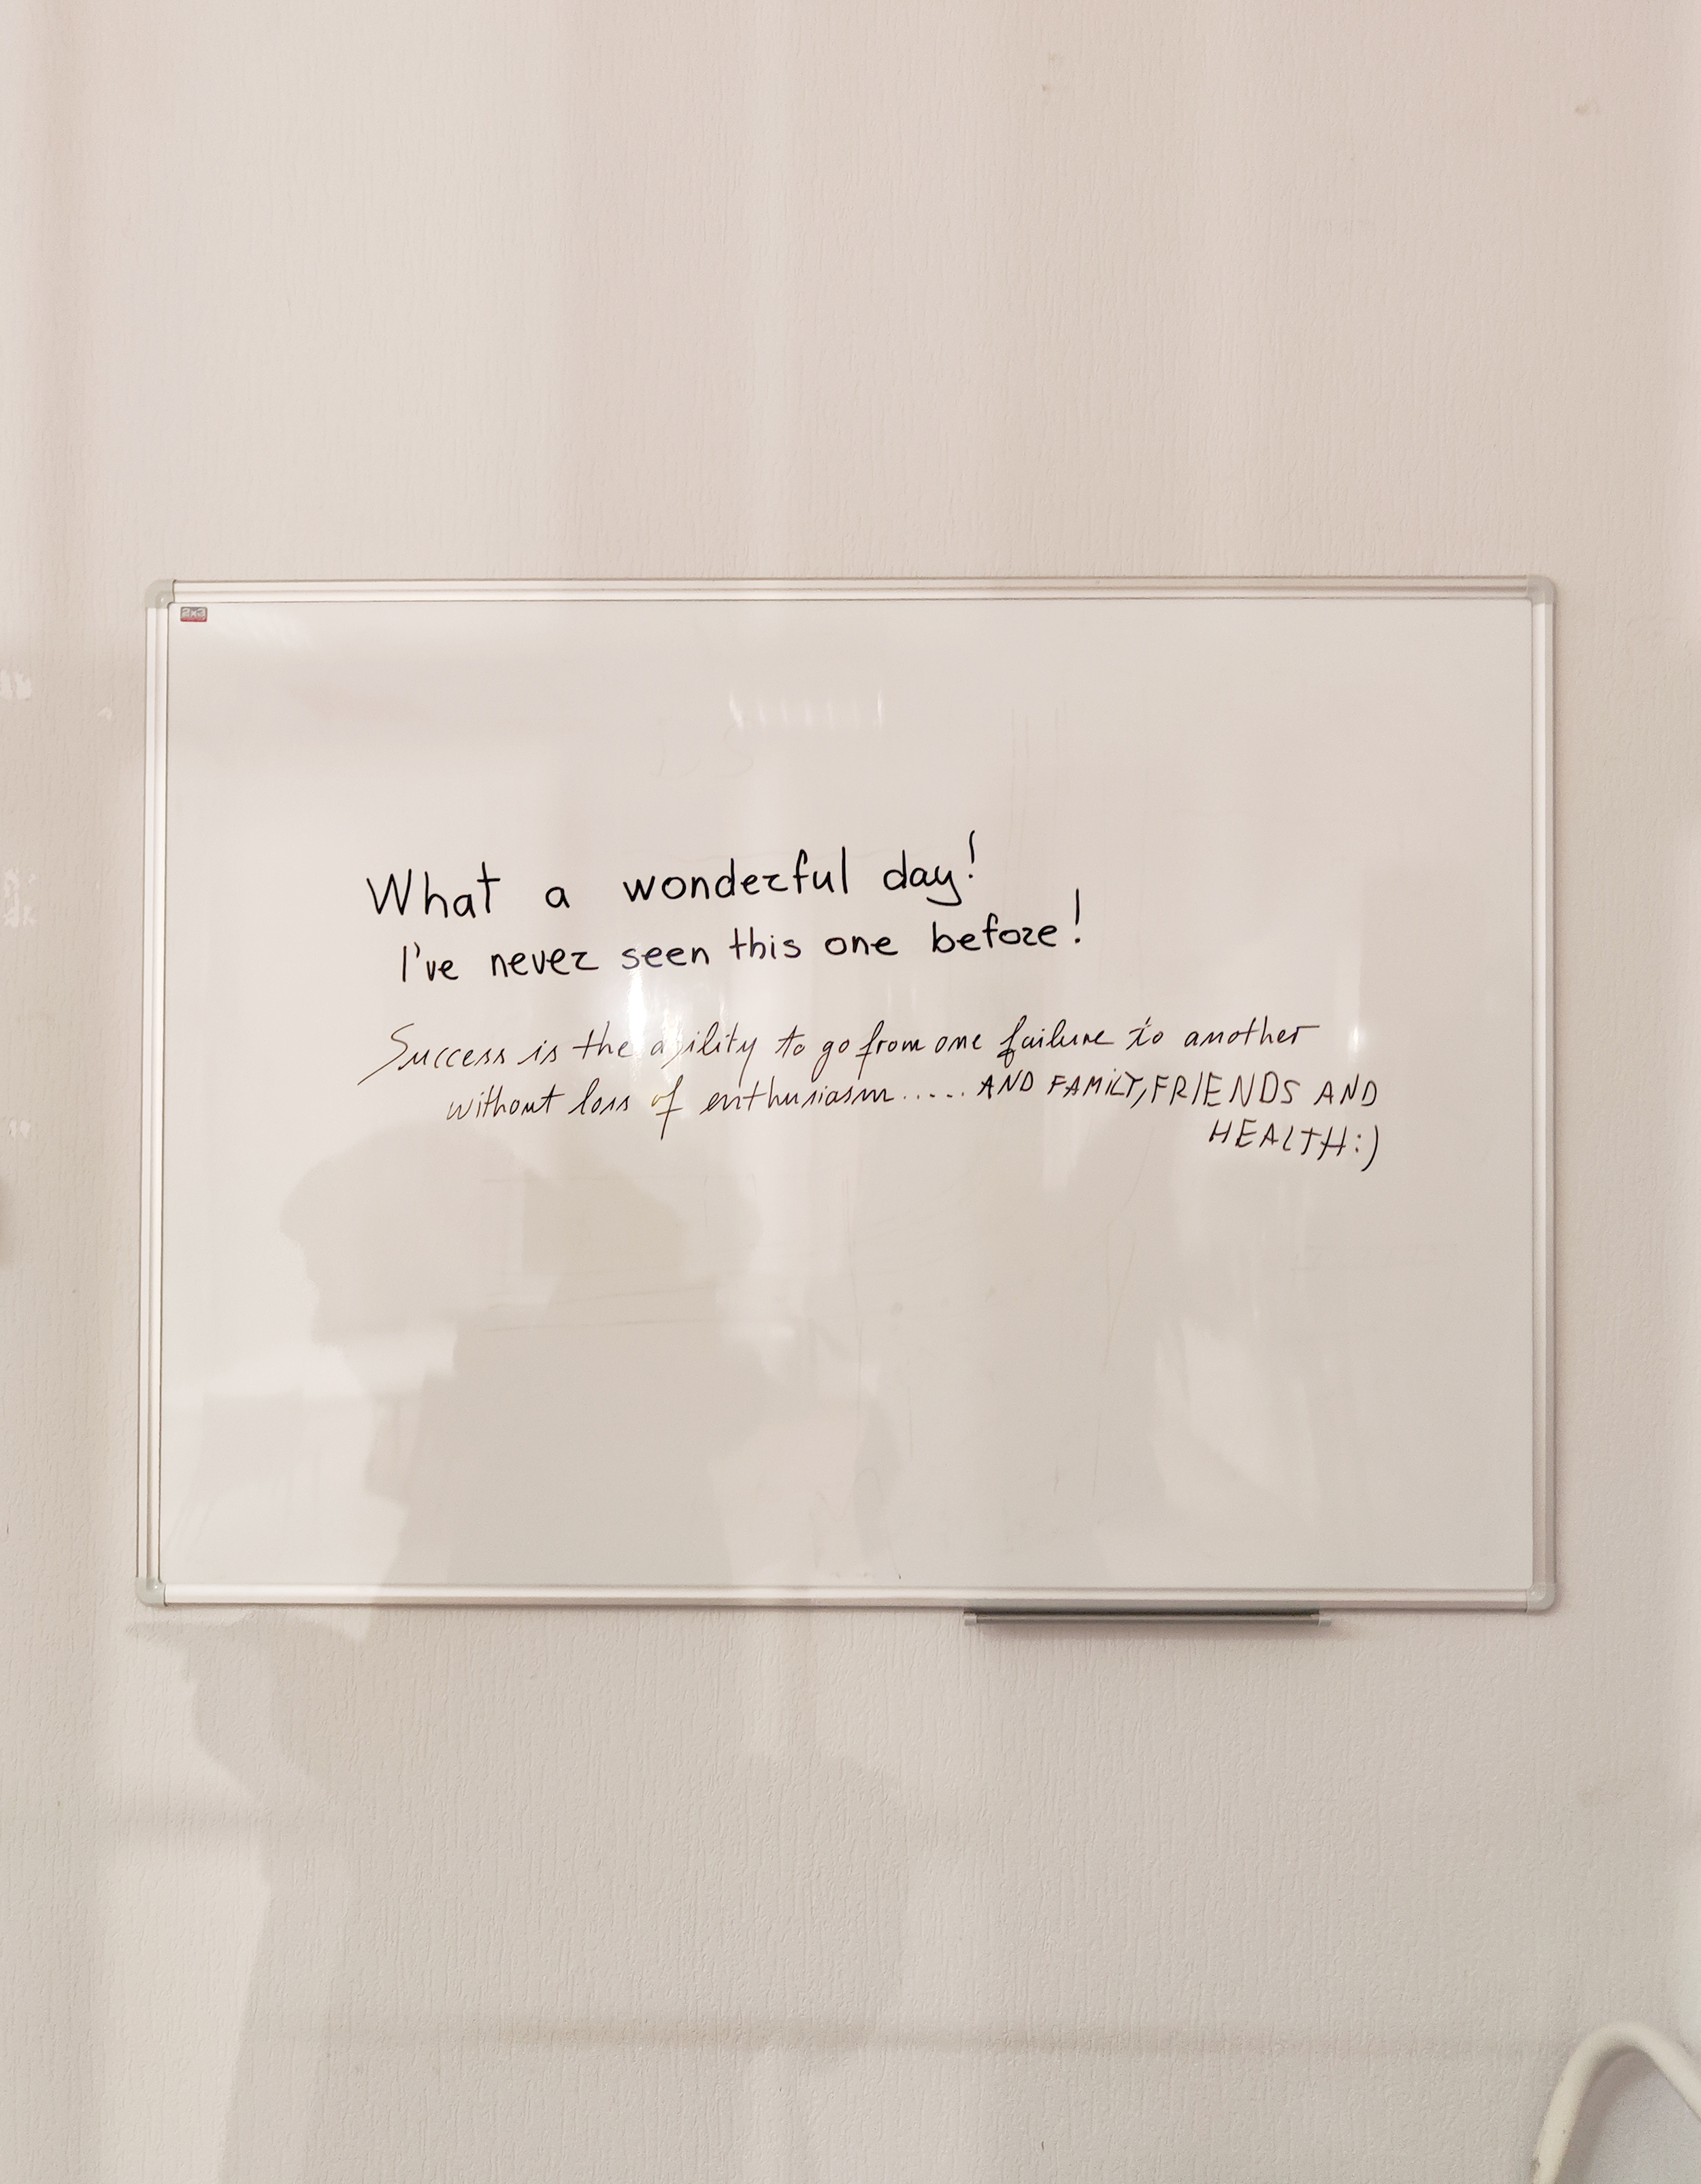 2x3
What a wonderful day!
I've never seen this one before!
Success is the ability to go from one failure to another
without loss of enthusiasm..... AND FAMILY, FRIENDS AND
HEALTH:)